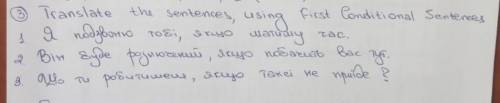 ③ Translate the sentences, using First Conditional Sentences
1 Я подзвоню тобі, якщо матиму час.
2 Він буде розлючений, якщо побачить вас тут.
3. Що ти робитимеш, якщо таксі не приїде?